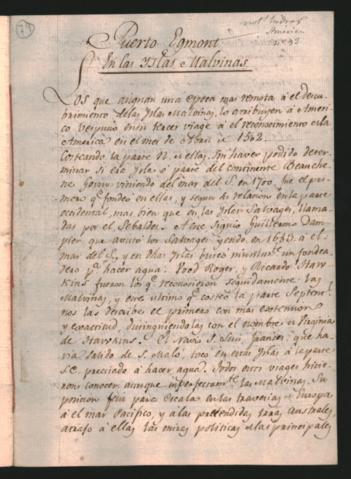 Puerto Egmont
En las Yslas Malvinas.
Los que asignan una epoca mas remota à el descu-
brimiento de las Yslas Malvinas, lo atribuyen à Ameri-
co Vespucio en su tercer viage à el reconocimiento de la
America en el mes de Abril de 1502.
Costeando la parte N. de ellas, sin haver podido deter-
minar si era Ysla ò parte del continente. Beauche-
ne Gouin viniendo del mar del S. en 1700, fue el pri-
mero qe. fondeò en ellas, y segun su relacion en la parte
occidental mas bien que en las Yslas Salvages, llama-
das por el Sebaldes. A este siguiò Guillermo Dam-
pier que avistò las Salvages yendo en 1683 à el
mar del S.
dero y hacer agua. Vood Roger, y Ricardo Haw-
kins fueron los qe. reconocieron seguidamente las
Malvinas, y este ultimo qe. costeò la parte Septent.
nos las describe el primero con mas extension
y exactitud, distinguiendolas con el nombre de Virginia
de Hawkins. El Navio S. Luis Frances que ha-
via salido de S. Malo, tocò en estas Yslas à la parte
S.E. precisado à hacer agua. Todos estos viages hicie-
ron conocer, aunque imperfectamte. las Malvinas. Su
posicion feliz para escala en las travesias de Europa
à el mar Pacifico, y à las pretendidas tierras Australes,
atrajo à ellas las miras politicas de las principales